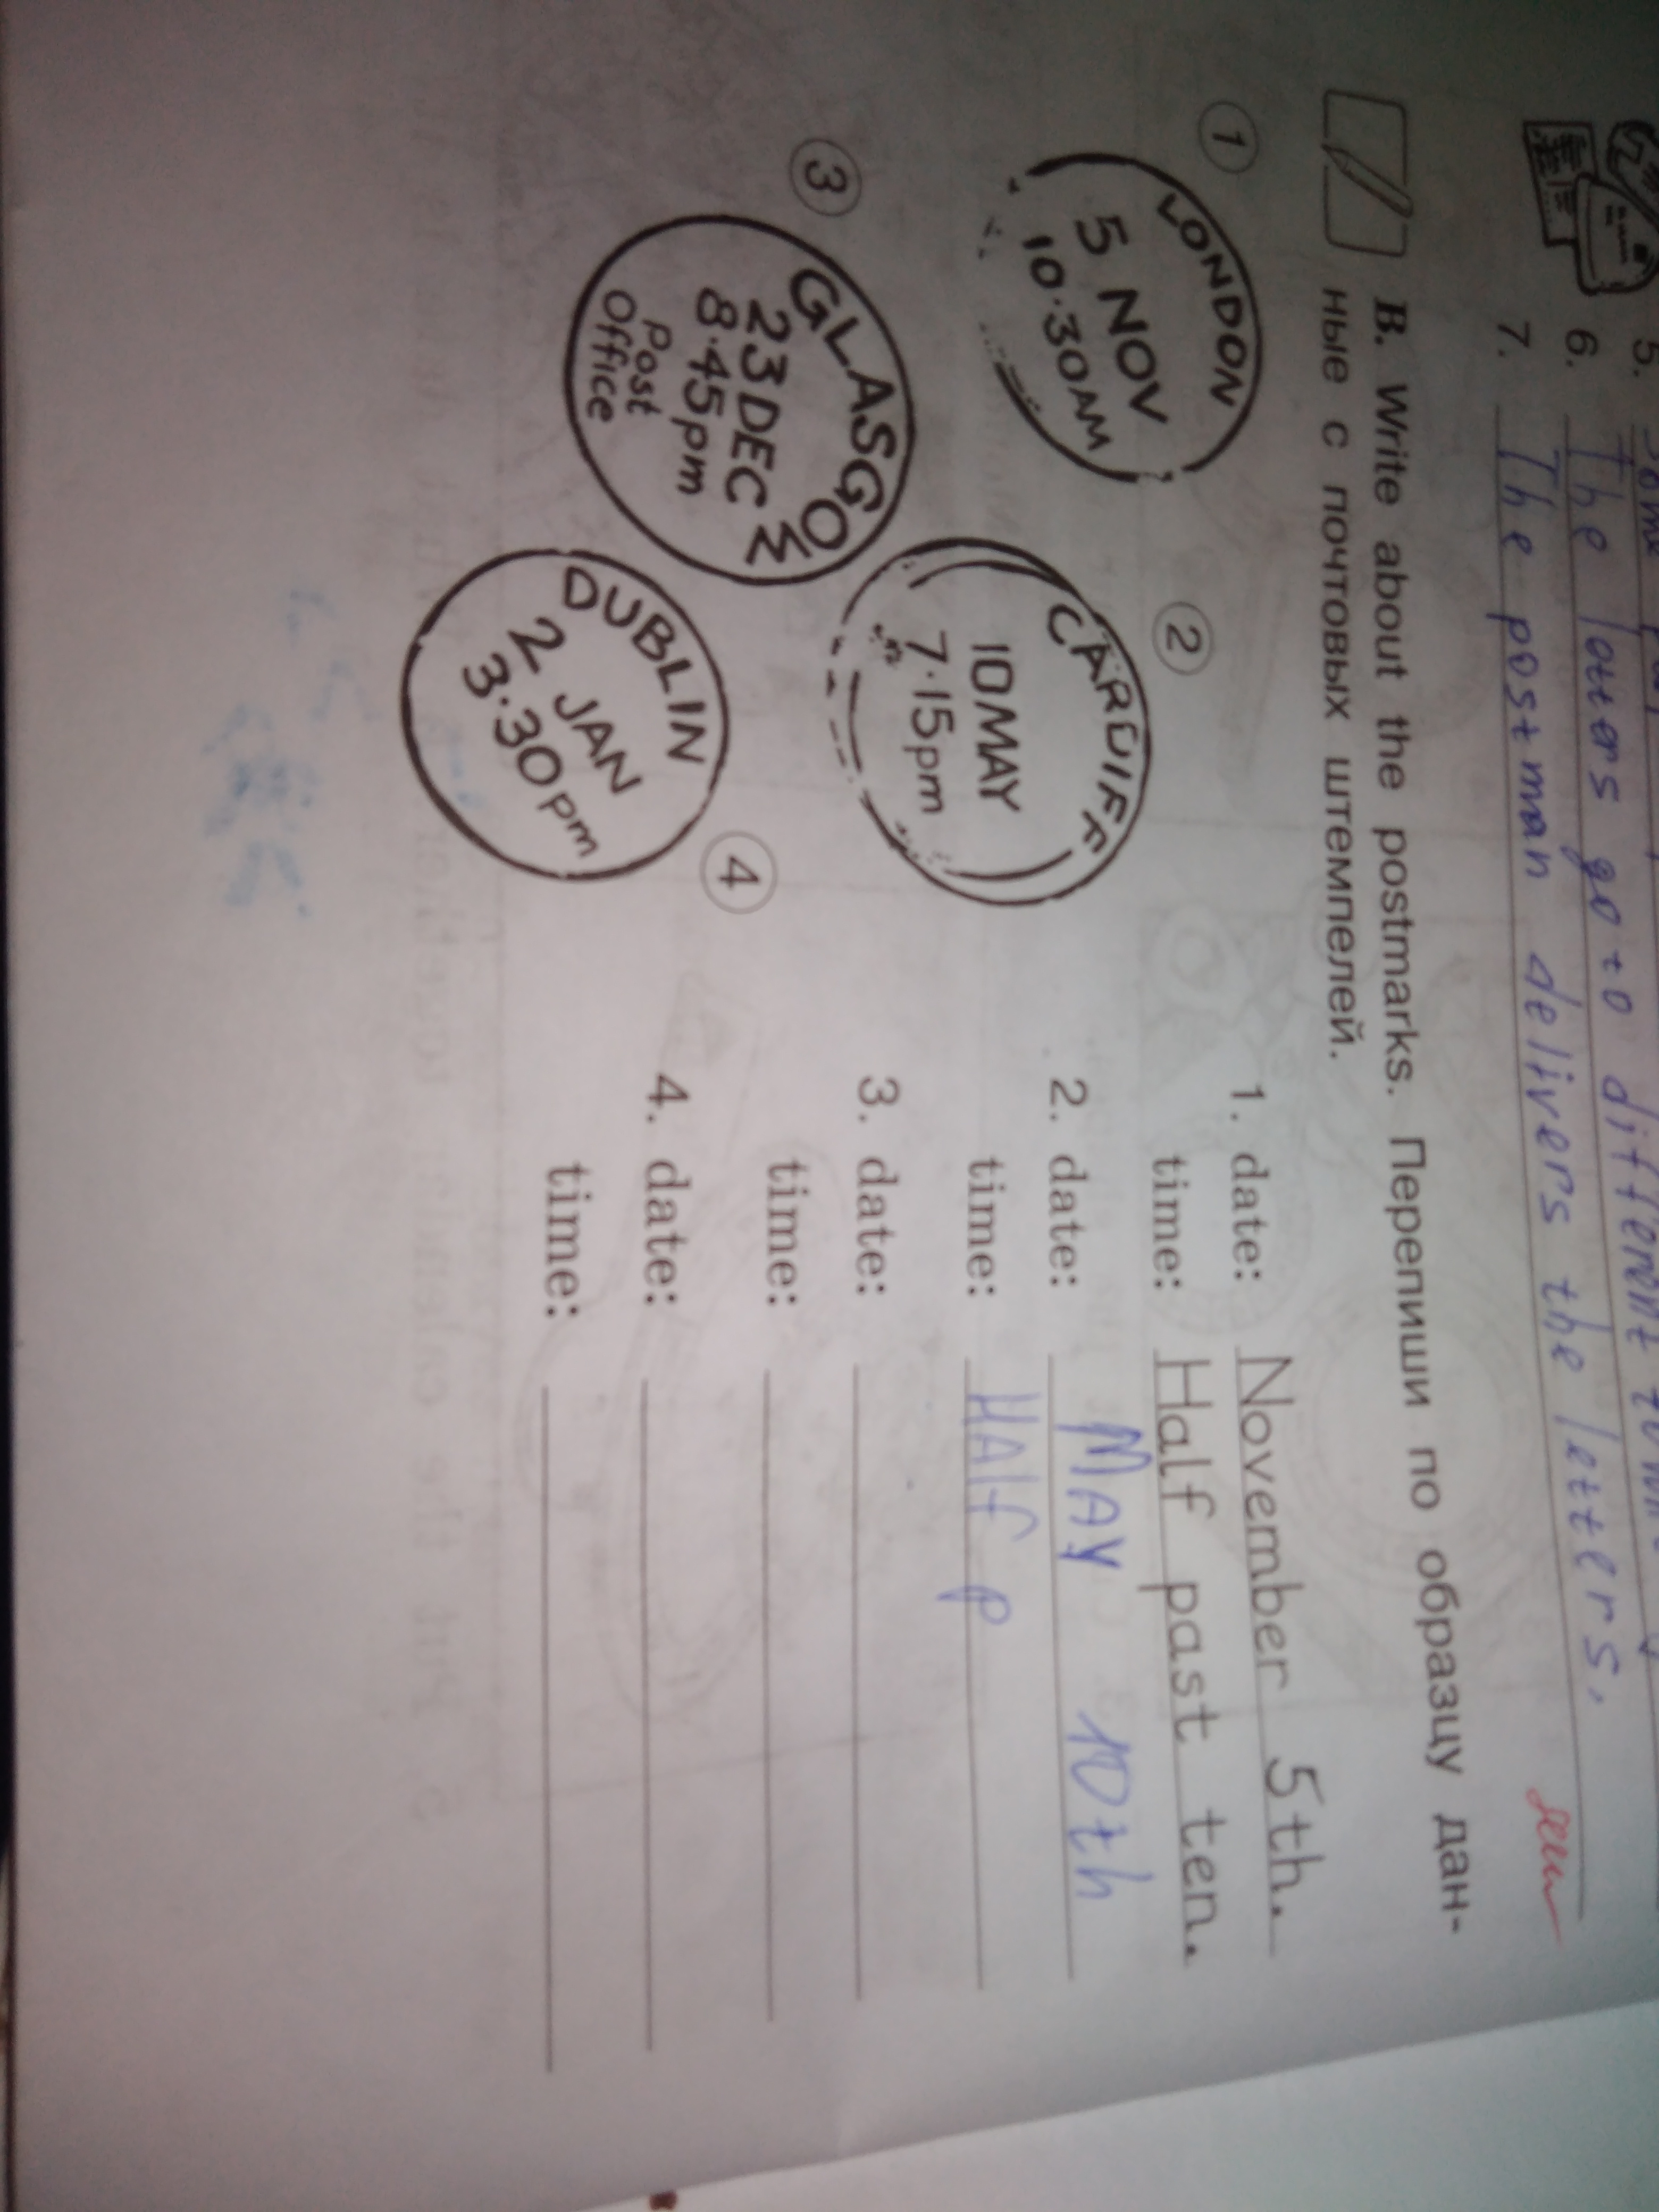 5.
6. The letters go to different
7. The postman delivers the letters.
B. Write about the postmarks. Перепиши по образцу дан-
ные с почтовых штемпелей.
1
LONDON
5 NOV
10.30AM
2
CARDIFF
10MAY
7.15pm
3
GLASGOW
23DEC
8.45pm
Post
Office
4
DUBLIN
2 JAN
3.30pm
1. date: November 5th.
time: Half past ten.
2. date: MAY 10th
time: HAlf p
3. date:
time:
4. date:
time: